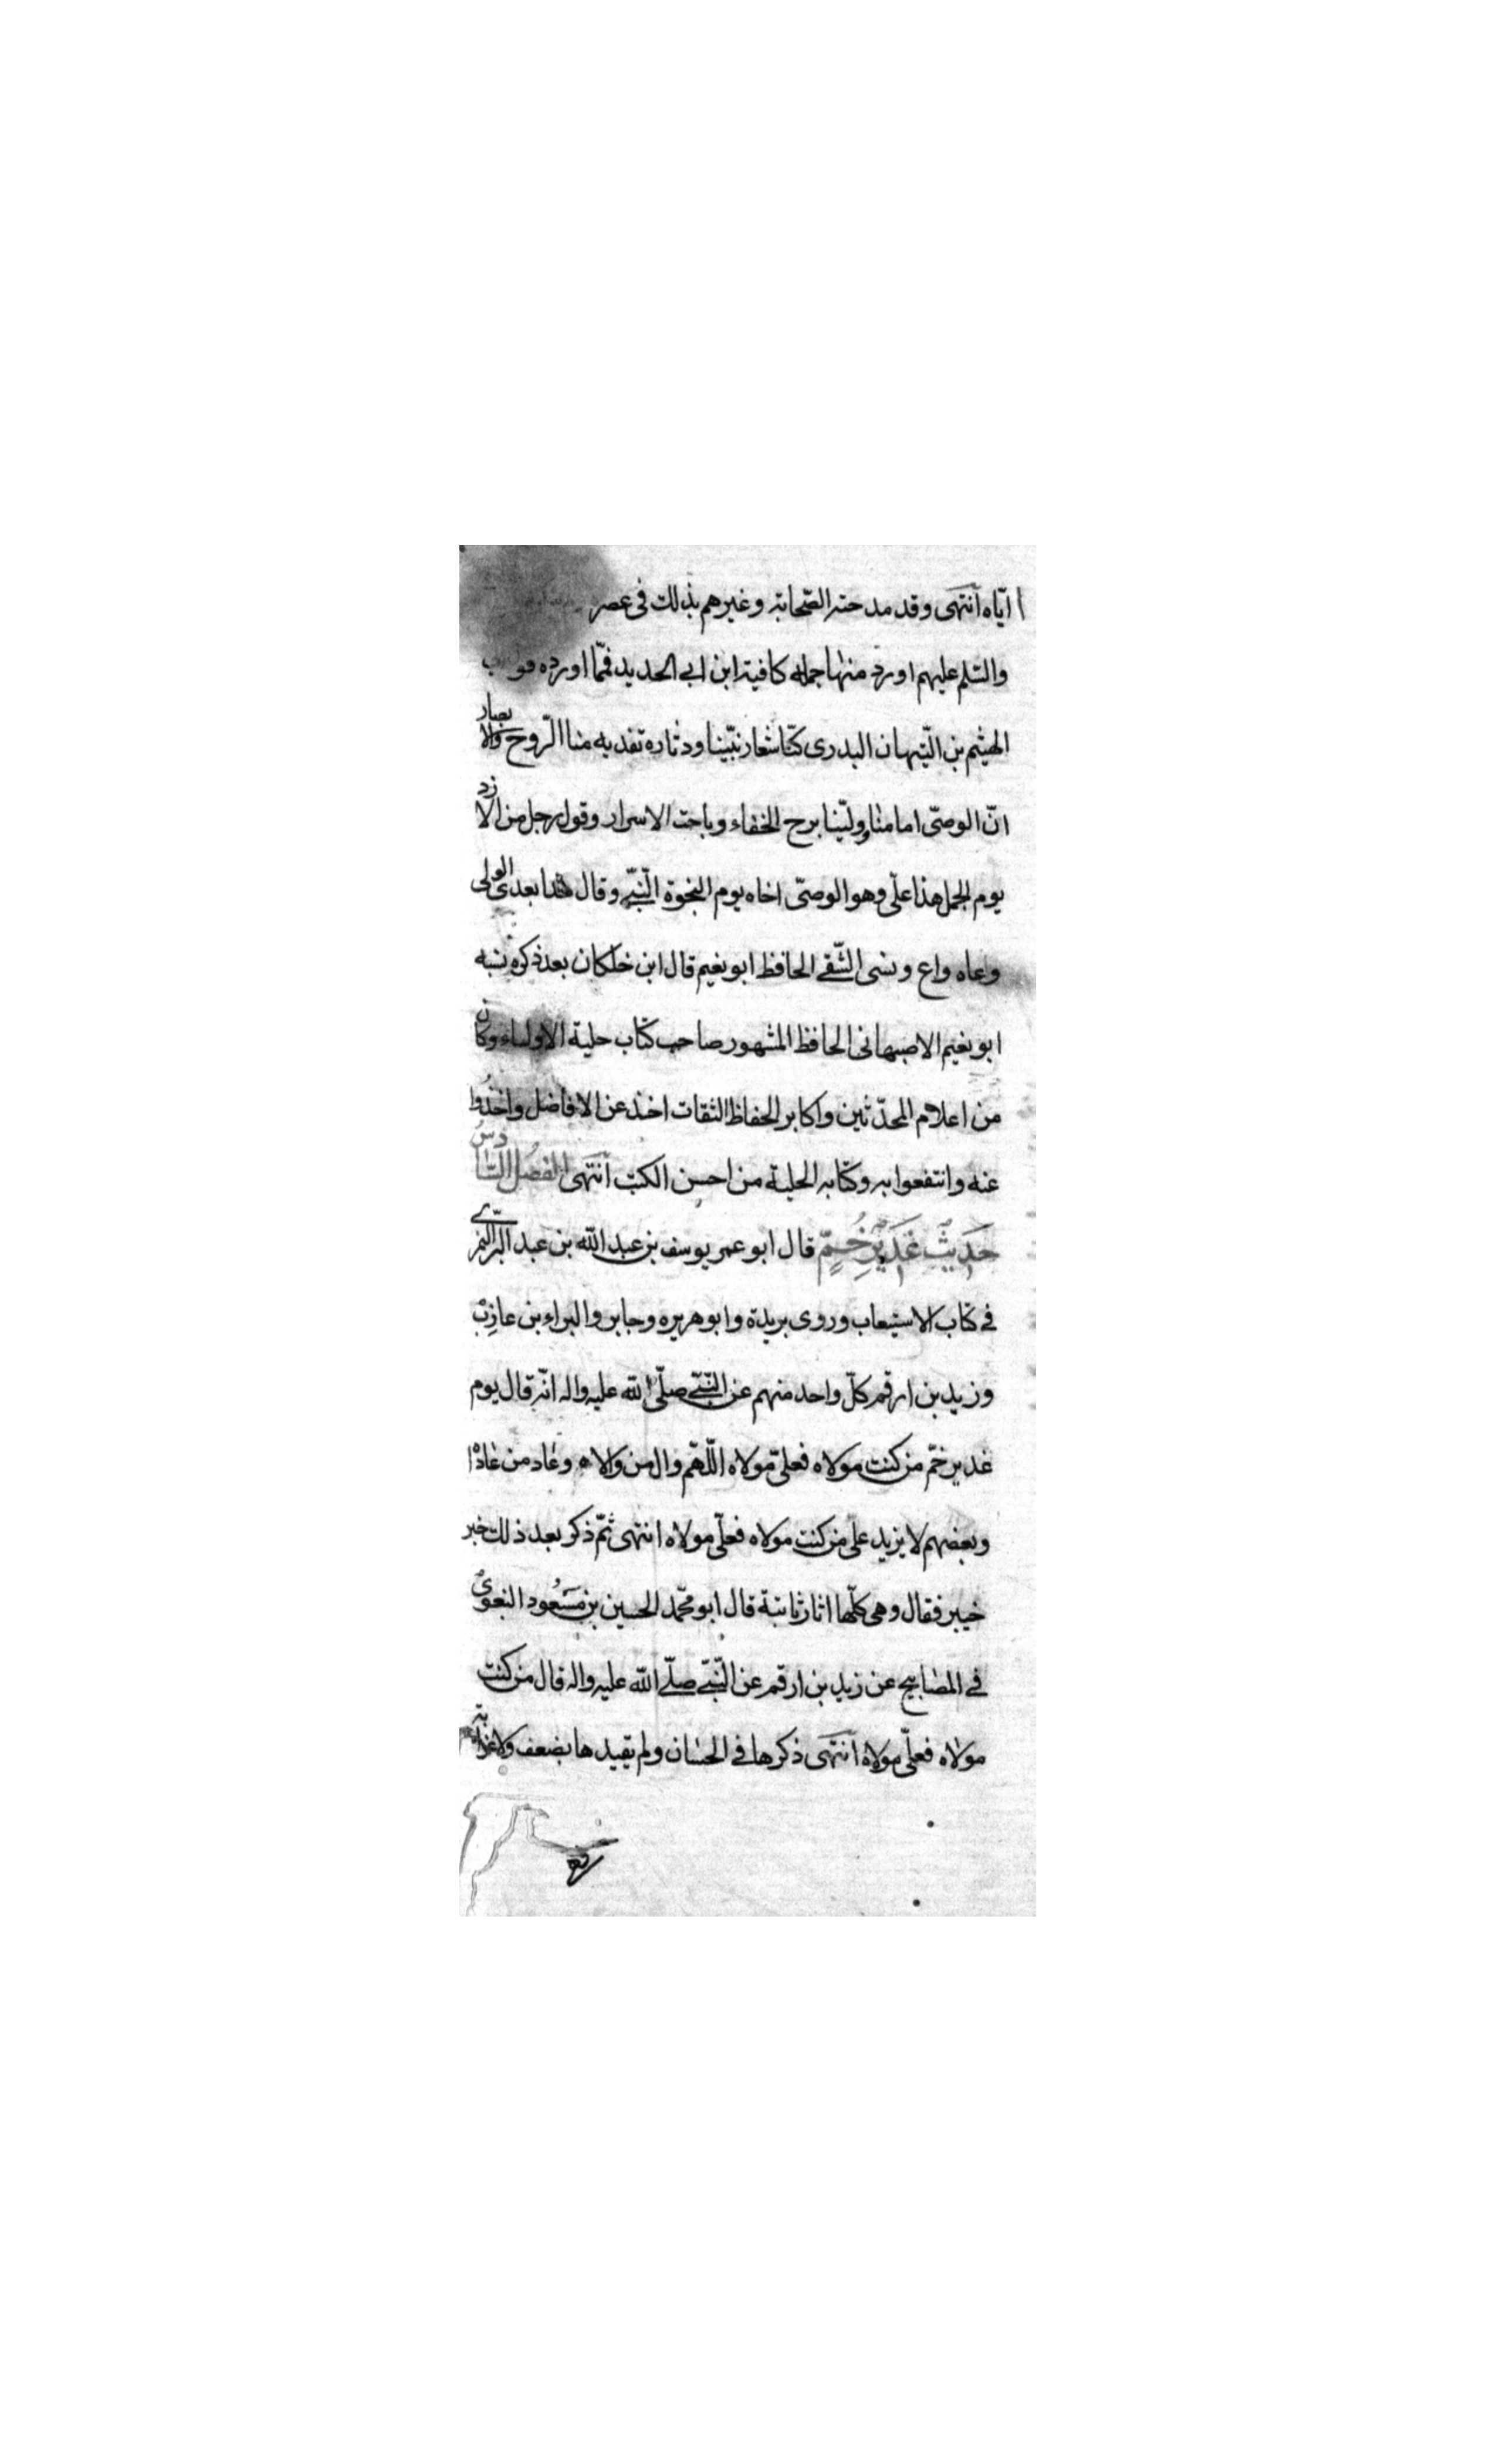 ايّاه انتهى وقد مدحته الصّحابة وغيرهم بذلك فى عصر
والسّلم عليهم اورد منها جملة كافية ابن ابى الحديد فممّا اورده
الهيثم بن التّيهان البدرى كنّا شعار نبيّنا ودثاره تفديه منا الرّوح والابصار
انّ الوصىّ امامنا وليّنا برح الخفاء وباحت الاسرار وقول رجل من الازد
يوم الجمل هذا علىّ وهو الوصىّ اخاه يوم النجوة النّبىّ وقال هذا بعدى الولى
وعاه واع ونسى الشّقى الحافظ ابو نعيم قال ابن خلكان بعد ذكره نسبه
ابو نعيم الاصبهانى الحافظ المشهور صاحب كتاب حلية الاولياء وكان
من اعلام المحدّثين واكابر الحفاظ الثقات اخذ عن الافاضل واخذوا
عنه وانتفعوا به وكتابه الحلية من احسن الكتب انتهى الفصل السّادس
حديث غدير خمّ قال ابو عمر يوسف بن عبد الله بن عبد البرّ النمرى
فى كتاب الاستيعاب وروى بريدة وابو هريره وجابر والبراء بن عازب
وزيد بن ارقم كلّ واحد منهم عن النّبىّ صلّى الله عليه واله انّه قال يوم
غدير خمّ من كنت مولاه فعلىّ مولاه اللّهمّ وال من والاه وعاد من عاداه
وبعضهم لا يزيد على من كنت مولاه فعلىّ مولاه انتهى ثمّ ذكر بعد ذلك خبر
خيبر فقال وهى كلّها اثار ثابتة قال ابو محمّد الحسين بن مسعود البغوى
فى المصابيح عن زيد بن ارقم عن النّبىّ صلّى الله عليه واله قال من كنت
مولاه فعلىّ مولاه انتهى ذكرها فى الحسان ولم يقيدها بضعف ولا غرابة